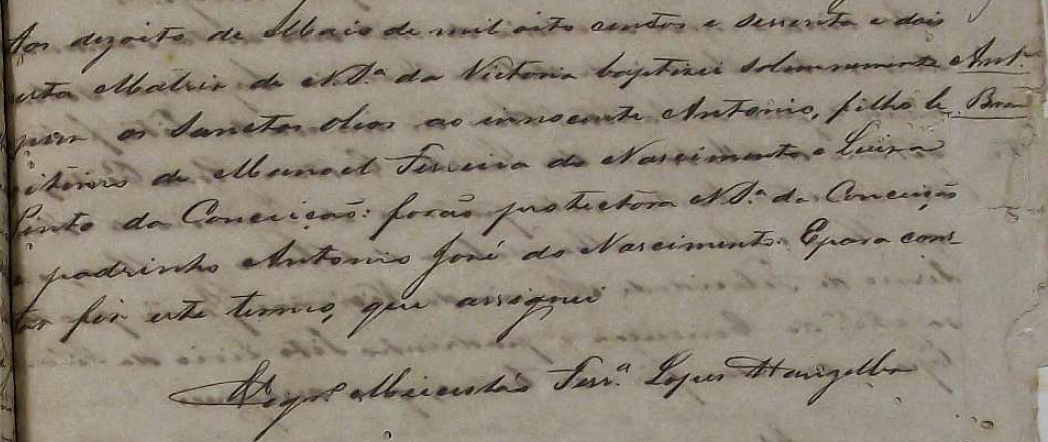 Aos dezoito de Maio de mil oito centos e sessenta e dois
esta Matriz de N. S.ª da Victoria baptizei solemnemente
Ant.º
puz os Sanctos oleos ao innocente Antonio, filho le
Bran
gitimo de Manoel Ferreira do Nascimento e Luiza
Pinto da Conceição: forão protectora N. S.ª da Conceição
e padrinho Antonio José do Nascimento. E para cons
tar fiz este termo, que assignei
Ferr.ª Lopes